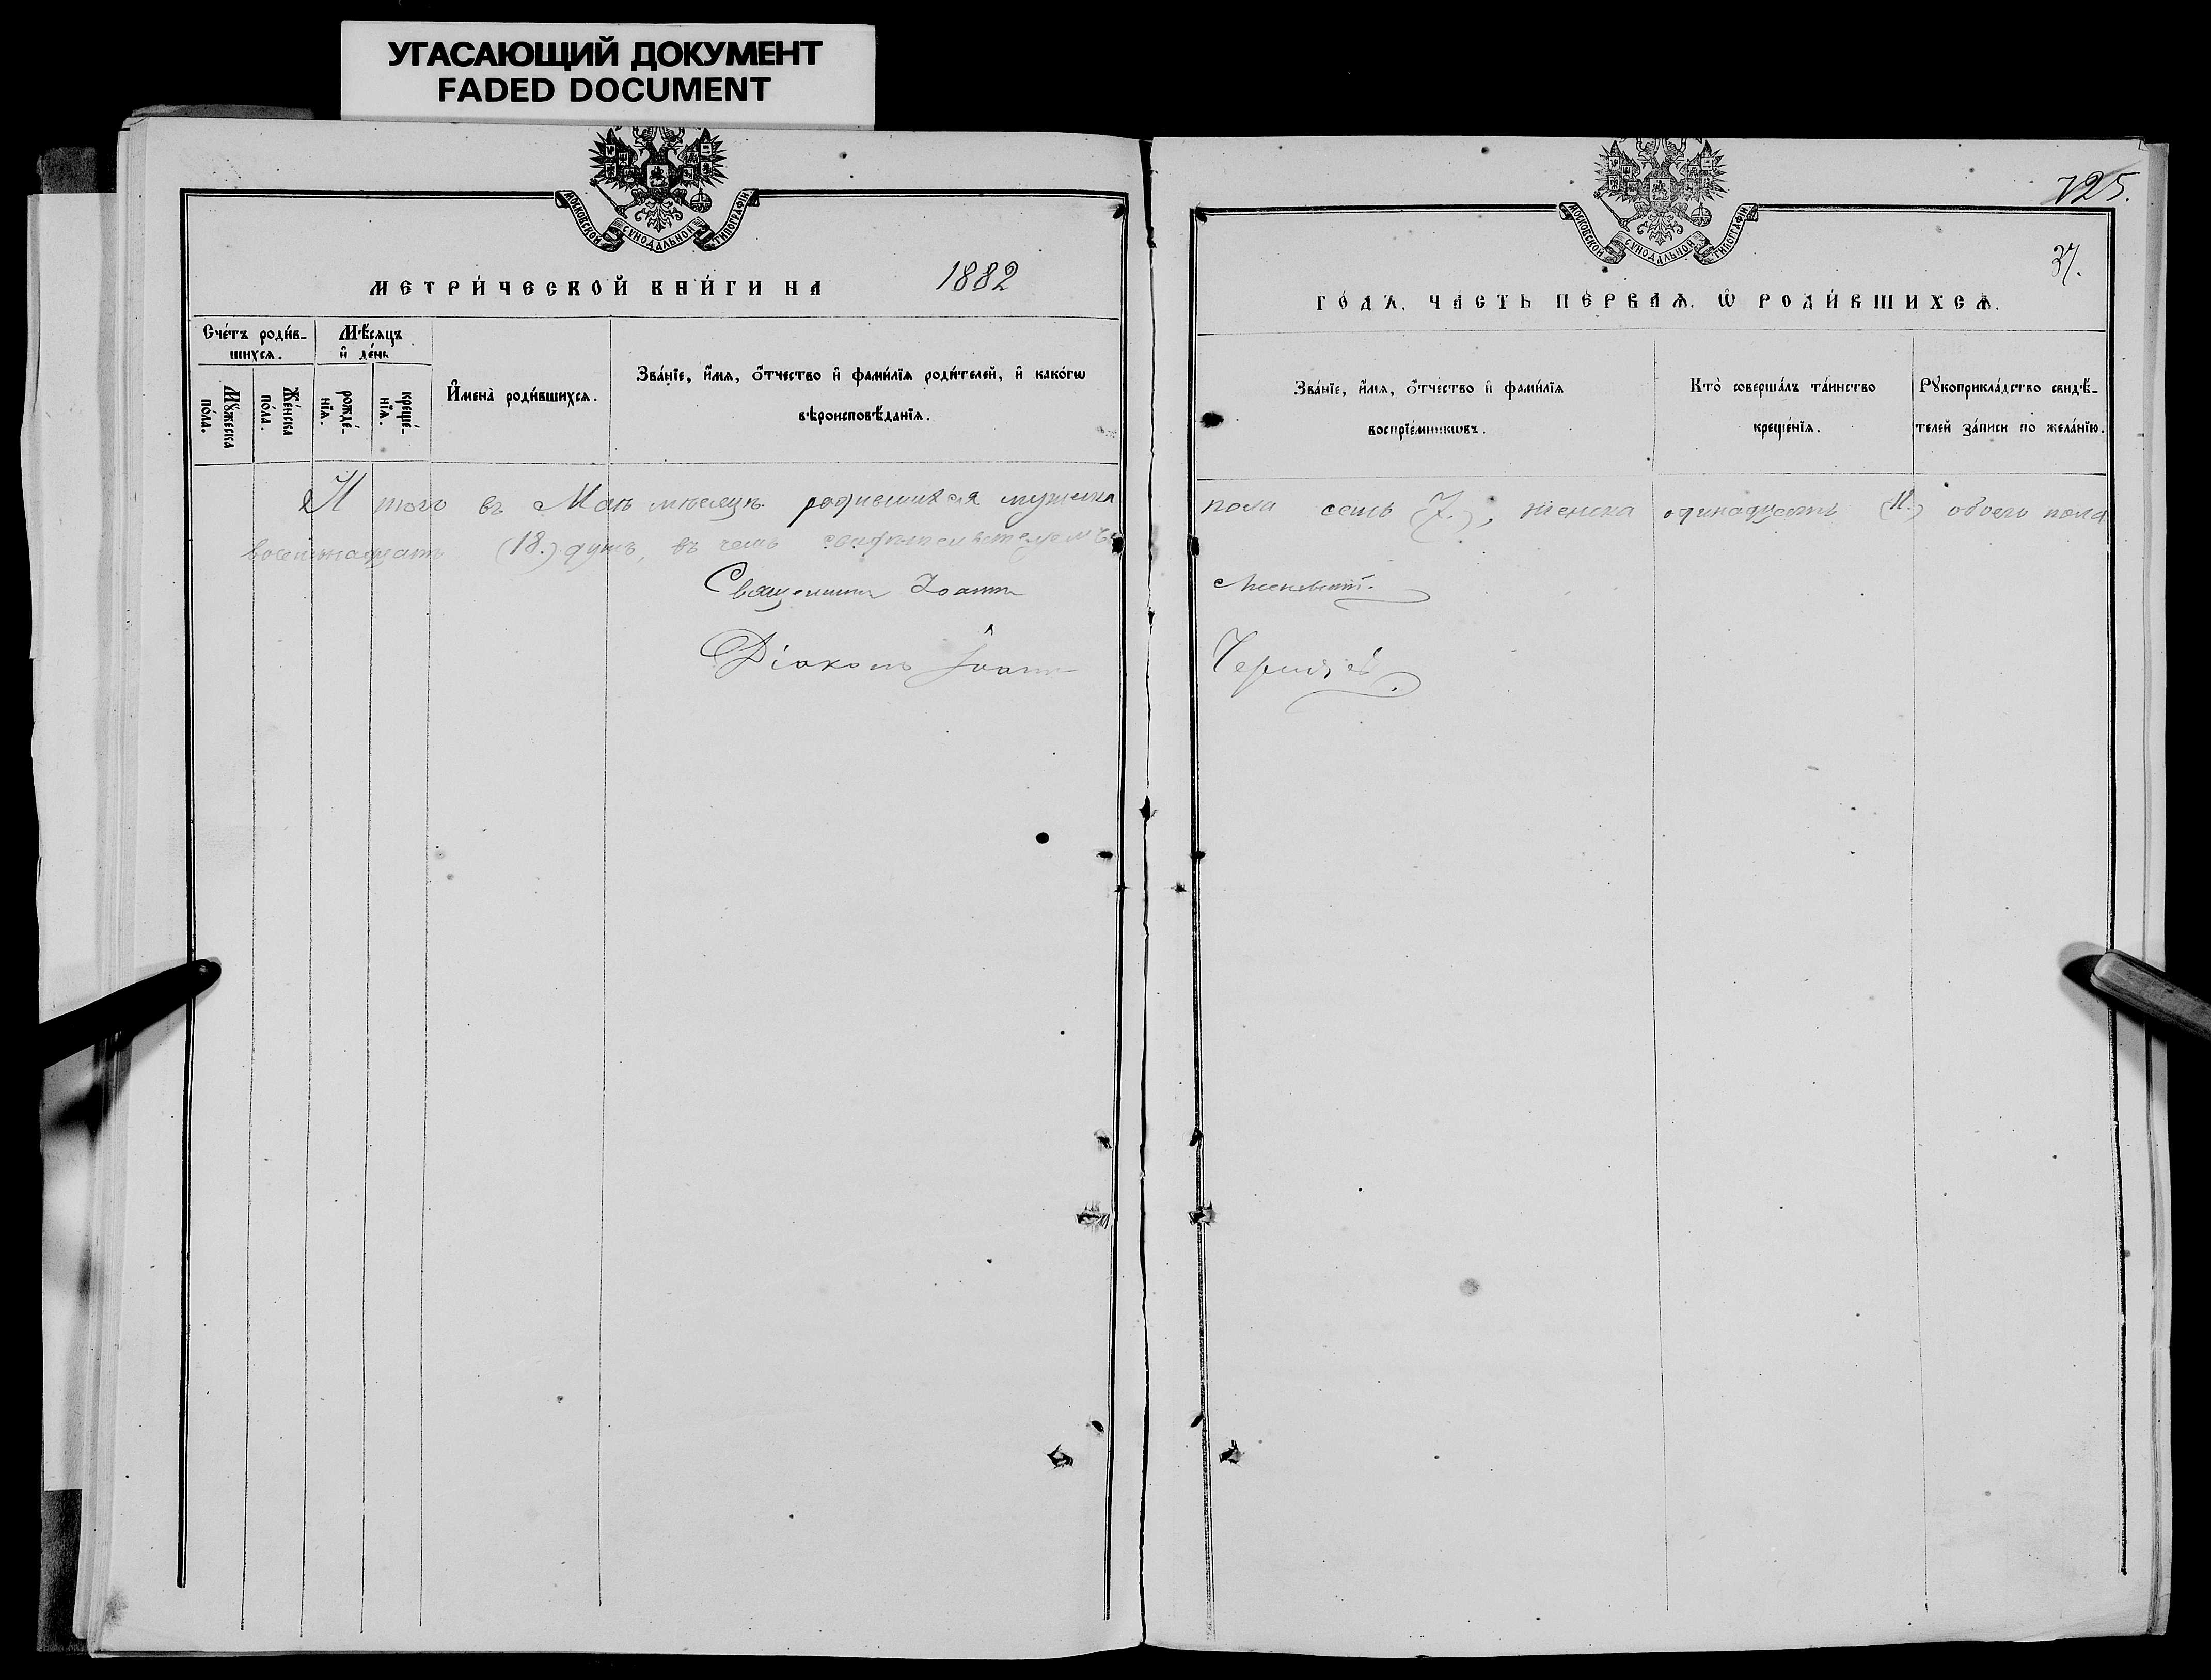 УГАСАЮЩИЙ ДОКУМЕНТ
FADED DOCUMENT
МОСКОВСКОЙ СУНОДАЛЬНОЙ ТИПОГРАФІИ
МЕТРИ́ЧЕСКОЙ КНИ́ГИ НА 1882
Сче́тъ роди́в-
шихся.
Мѣ́сяцъ
и҆ де́нь
Мꙋ́жеска
по́ла.
Же́нска
по́ла.
рожде́-
нїѧ.
креще́-
нїѧ.
И҆мена̀ роди́вшихся.
Зва́нїе, и҆́мя, ѻ҆́тчество и҆ фами́лїя роди́телей, и҆ како́гѡ
вѣроисповѣ́данїя.
И того въ Маѣ мѣсяцѣ родившихся мужеска
восемнадцать (18.) душъ, въ чемъ свидѣтельствуемъ
Священникъ Іоаннъ
Діаконъ Іоаннъ
125.
МОСКОВСКОЙ СУНОДАЛЬНОЙ ТИПОГРАФІИ
37.
ГО́ДЪ, ЧА́СТЬ ПЕ́РВАѦ, Ѡ҆ РОДИ́ВШИХСѦ.
Зва́нїе, и҆́мя, ѻ҆́тчество и҆ фами́лїя
воспрїе́мникѡвъ.
Кто̀ соверша́лъ та́инство
креще́нїя.
Рꙋкоприкла́дство свидѣ́-
телей за́писи по жела́нїю.
пола семь (7.), женска одинадцать (11.) обоего пола